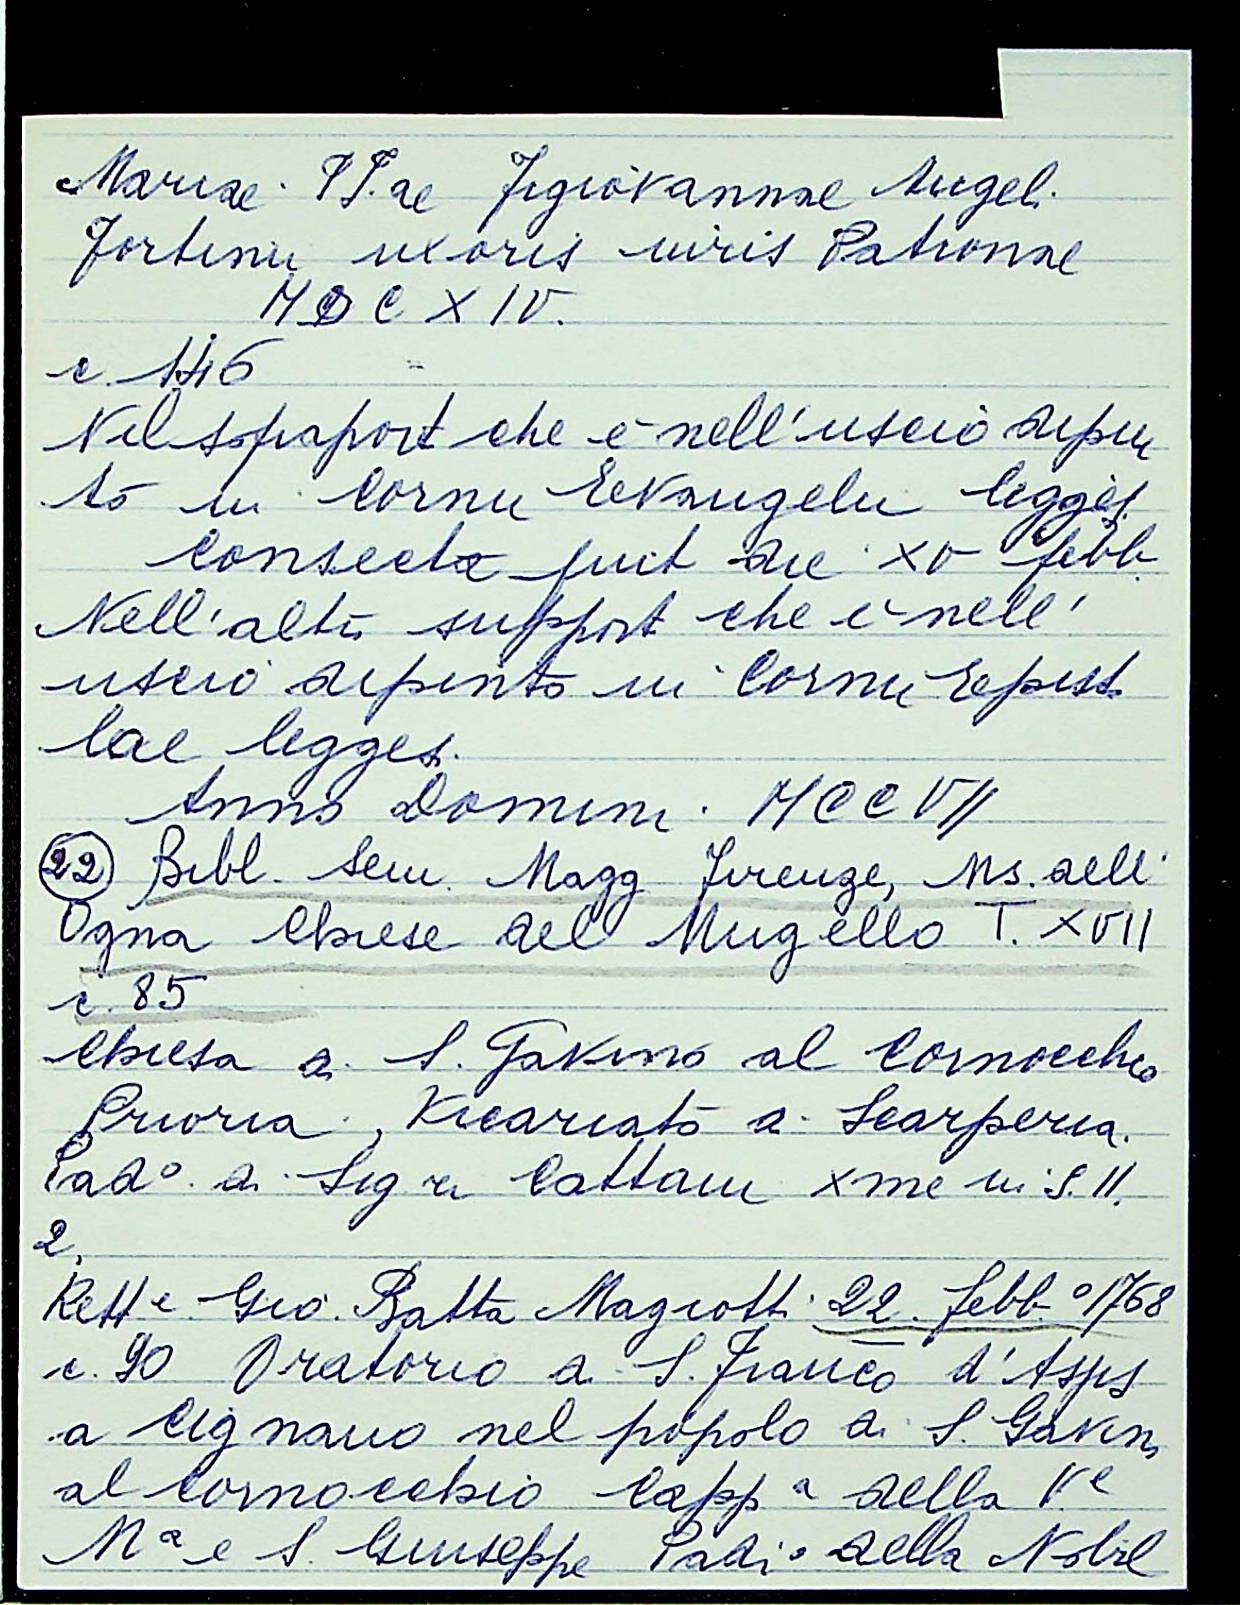 Mariae. PP.ae Figiovannae Angeli
Fortini uxoris iuris Patronae
MDCXIV.
c. 146
Nel sopraport che è nell'uscio dipin
to in Cornu Evangelii leggesi
Consecta fuit die XV febb.
Nell'altro support che è nell'
uscio dipinto in Cornu Episto
lae legges.
Anno Domini. MCCVII
22 Bibl. Sem. Magg Firenze, Ms. dell'
Ogna Chiese del Mugello T. XVII
c. 85
Chiesa di S. Gavino al Cornocchio
Prioria, Vicariato di Scarperia.
Pad° di Sig ri Cattani x me in S. 11.
2,
Rett e Gio. Batta Magiotti 22 febb.° 1768
c. 90 Oratorio di S. Franco d'Asis
a Cignano nel popolo di S. Gavino
al Cornocchio Capp a della V.e
M a e S. Giuseppe Padi° della Nobil